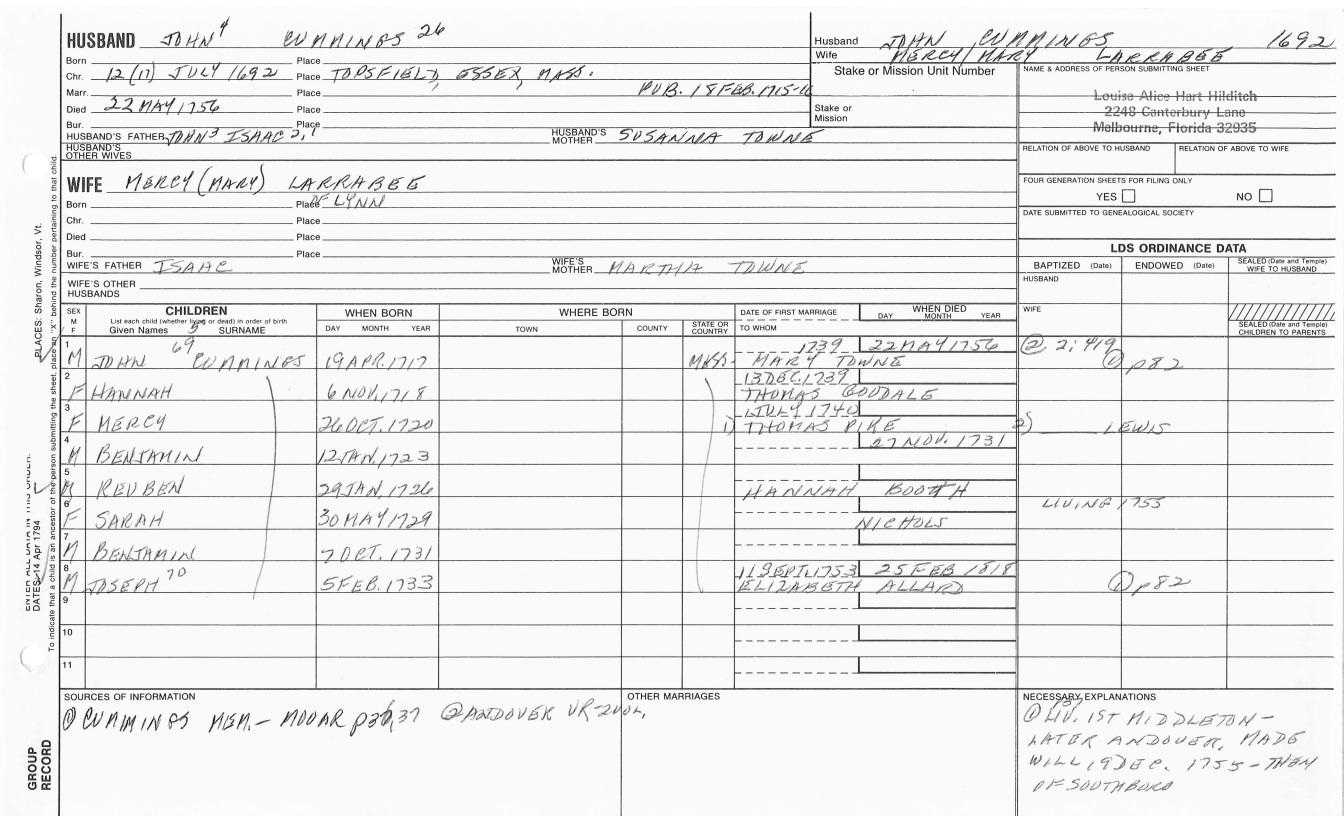 HUSBAND JOHN 4 CUMMINGS 26
Born Place
Chr. 12 (17) JULY 1692 Place TOPSFIELD, ESSEX, MASS.
Marr. Place PUB. 18 FEB. 1715-16
Died 22 MAY 1756 Place
Bur. Place
HUSBAND'S FATHER JOHN 3 ISAAC 2,1 HUSBAND'S MOTHER SUSANNA TOWNE
HUSBAND'S OTHER WIVES
WIFE MERCY (MARY) LARRABEE
Born Place OF LYNN
Chr. Place
Died Place
Bur. Place
WIFE'S FATHER ISAAC WIFE'S MOTHER MARTHA TOWNE
WIFE'S OTHER HUSBANDS
Husband JOHN CUMMINGS 1692
Wife MERCY/MARY LARRABEE
Stake or Mission Unit Number
Stake or Mission
NAME & ADDRESS OF PERSON SUBMITTING SHEET
Louisa Alice Hart Hilditch
2248 Canterbury Lane
Melbourne, Florida 32935
RELATION OF ABOVE TO HUSBAND RELATION OF ABOVE TO WIFE
FOUR GENERATION SHEETS FOR FILING ONLY
YES NO
DATE SUBMITTED TO GENEALOGICAL SOCIETY
LDS ORDINANCE DATA
BAPTIZED (Date) ENDOWED (Date) SEALED (Date and Temple) WIFE TO HUSBAND
HUSBAND
WIFE
SEALED (Date and Temple) CHILDREN TO PARENTS
SEX M F
CHILDREN
List each child (whether living or dead) in order of birth
Given Names 5 SURNAME
WHEN BORN
DAY MONTH YEAR
WHERE BORN
TOWN COUNTY STATE OR COUNTRY
DATE OF FIRST MARRIAGE
TO WHOM
WHEN DIED
DAY MONTH YEAR
1 M JOHN 69 CUMMINGS 19 APR. 1717 MASS- 1739 MARY TOWNE 22 MAY 1756 ② 2; 419 ① p82
2 F HANNAH 6 NOV. 1718 13 DEC. 1739 THOMAS GOODALE
3 F MERCY 26 OCT. 1720 1 JULY 1740 1) THOMAS PIKE 2) LEWIS
4 M BENJAMIN 12 JAN. 1723 27 NOV. 1731
5 M REUBEN 29 JAN. 1726 HANNAH BOOTH
6 F SARAH 30 MAY 1729 NICHOLS LIVING 1755
7 M BENJAMIN 7 OCT. 1731
8 M JOSEPH 70 5 FEB. 1733 11 SEPT. 1753 ELIZABETH ALLARD 25 FEB 1818 ① p82
9
10
11
SOURCES OF INFORMATION
① CUMMINGS MEM.- MOOAR p36,37 ② ANDOVER VR-2VOL,
OTHER MARRIAGES
NECESSARY EXPLANATIONS
p37
① LIV. 1ST MIDDLETON -
LATER ANDOVER, MADE
WILL 19 DEC. 1755 - THEN
OF SOUTHBORO
PLACES: Sharon, Windsor, Vt.
To indicate that a child is an ancestor of the person submitting the sheet, place an "X" behind the number pertaining to that child.
ENTER ALL DATA IN THIS ORDER:
DATES: 14 Apr 1794
GROUP
RECORD